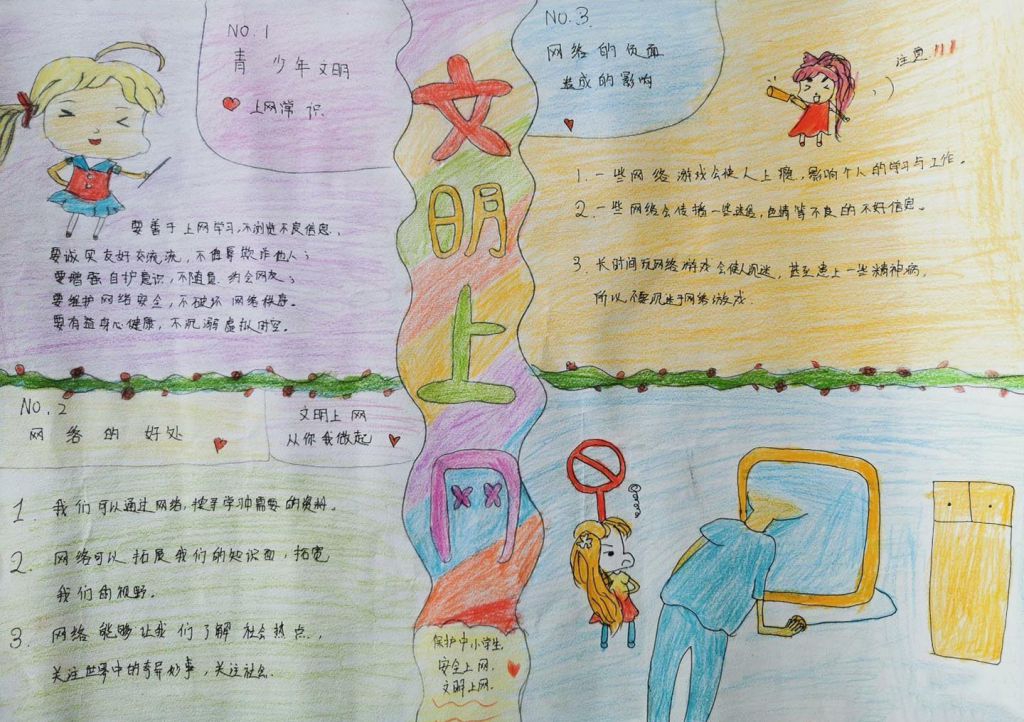 NO.1
青少年文明
上网常识
要善于上网学习,不浏览不良信息,
要诚实友好交流流,不侮辱欺诈他人;
要增强自护意识,不随意约会网友;
要维护网络安全,不破坏网络秩序。
要有益身心健康,不沉溺虚拟时空。
文明上网
NO.3.
网络的负面
造成的影响
注意!!!
1.一些网络游戏会使人上瘾,影响个人的学习与工作。
2.一些网络会传播一些迷信,色情等不良的不好信息。
3.长时间玩网络游戏会使人沉迷,甚至患上一些精神病,
所以不要沉迷于网络游戏.
NO.2
网络的好处
文明上网
从你我做起
1.我们可以通过网络,搜寻学习中需要的资料。
2.网络可以拓展我们的知识面,拓宽
我们的视野。
3.网络能够让我们了解社会热点,
关注世界中的奇异妙事,关注社会.
保护中小学生,
安全上网,
文明上网.